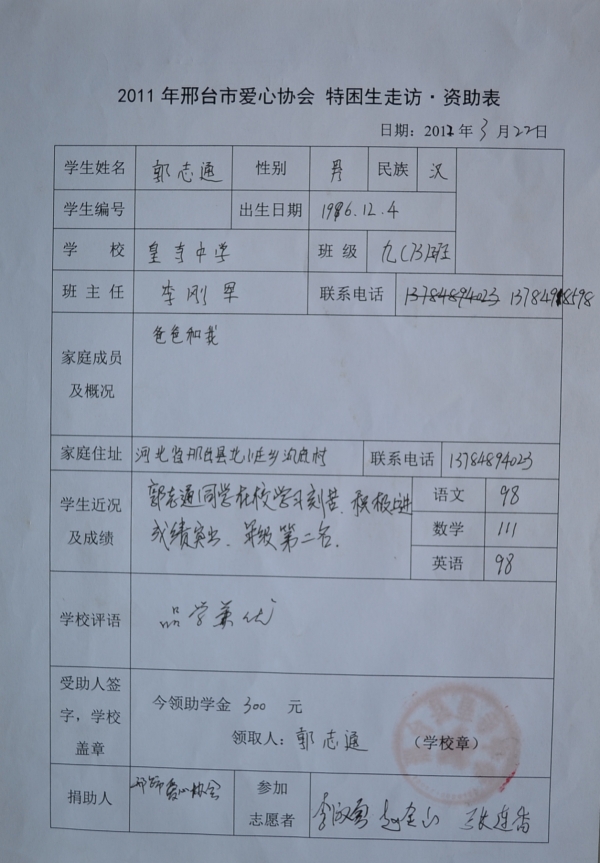 2011年邢台市爱心协会 特困生走访·资助表
日期：2012年3月22日
学生姓名 郭志通 性别 男 民族 汉
学生编号 出生日期 1996.12.4
学 校 皇寺中学 班 级 九(3)班
班 主 任 李刚军 联系电话 13784894023
家庭成员及概况 爸爸和我
家庭住址 河北省邢台县北小庄乡 村 联系电话 13784894023
学生近况及成绩 郭志通同学在校学习刻苦、积极上进
成绩突出、年级第二名.
语文 98
数学 111
英语 98
学校评语 品学兼优
受助人签字，学校盖章 今领助学金 300 元
领取人：郭志通 （学校章）
捐助人 邢师爱心协会 参加志愿者 张连香